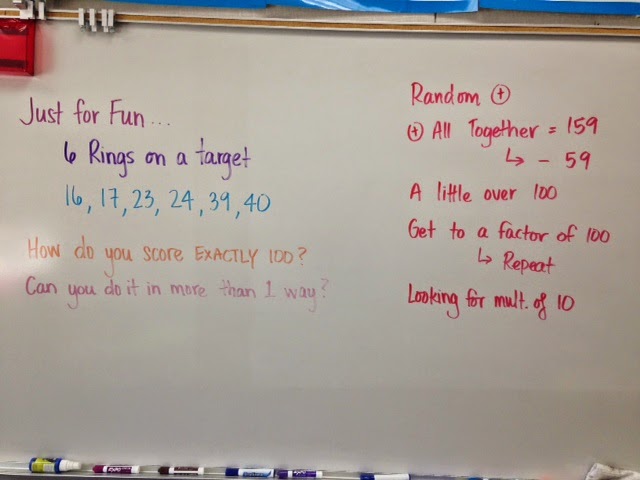 Just for Fun...
6 Rings on a target
16, 17, 23, 24, 39, 40
How do you score EXACTLY 100?
Can you do it in more than 1 way?
Random ⊕
⊕ All Together = 159
↳ - 59
A little over 100
Get to a factor of 100
↳ Repeat
Looking for mult. of 10